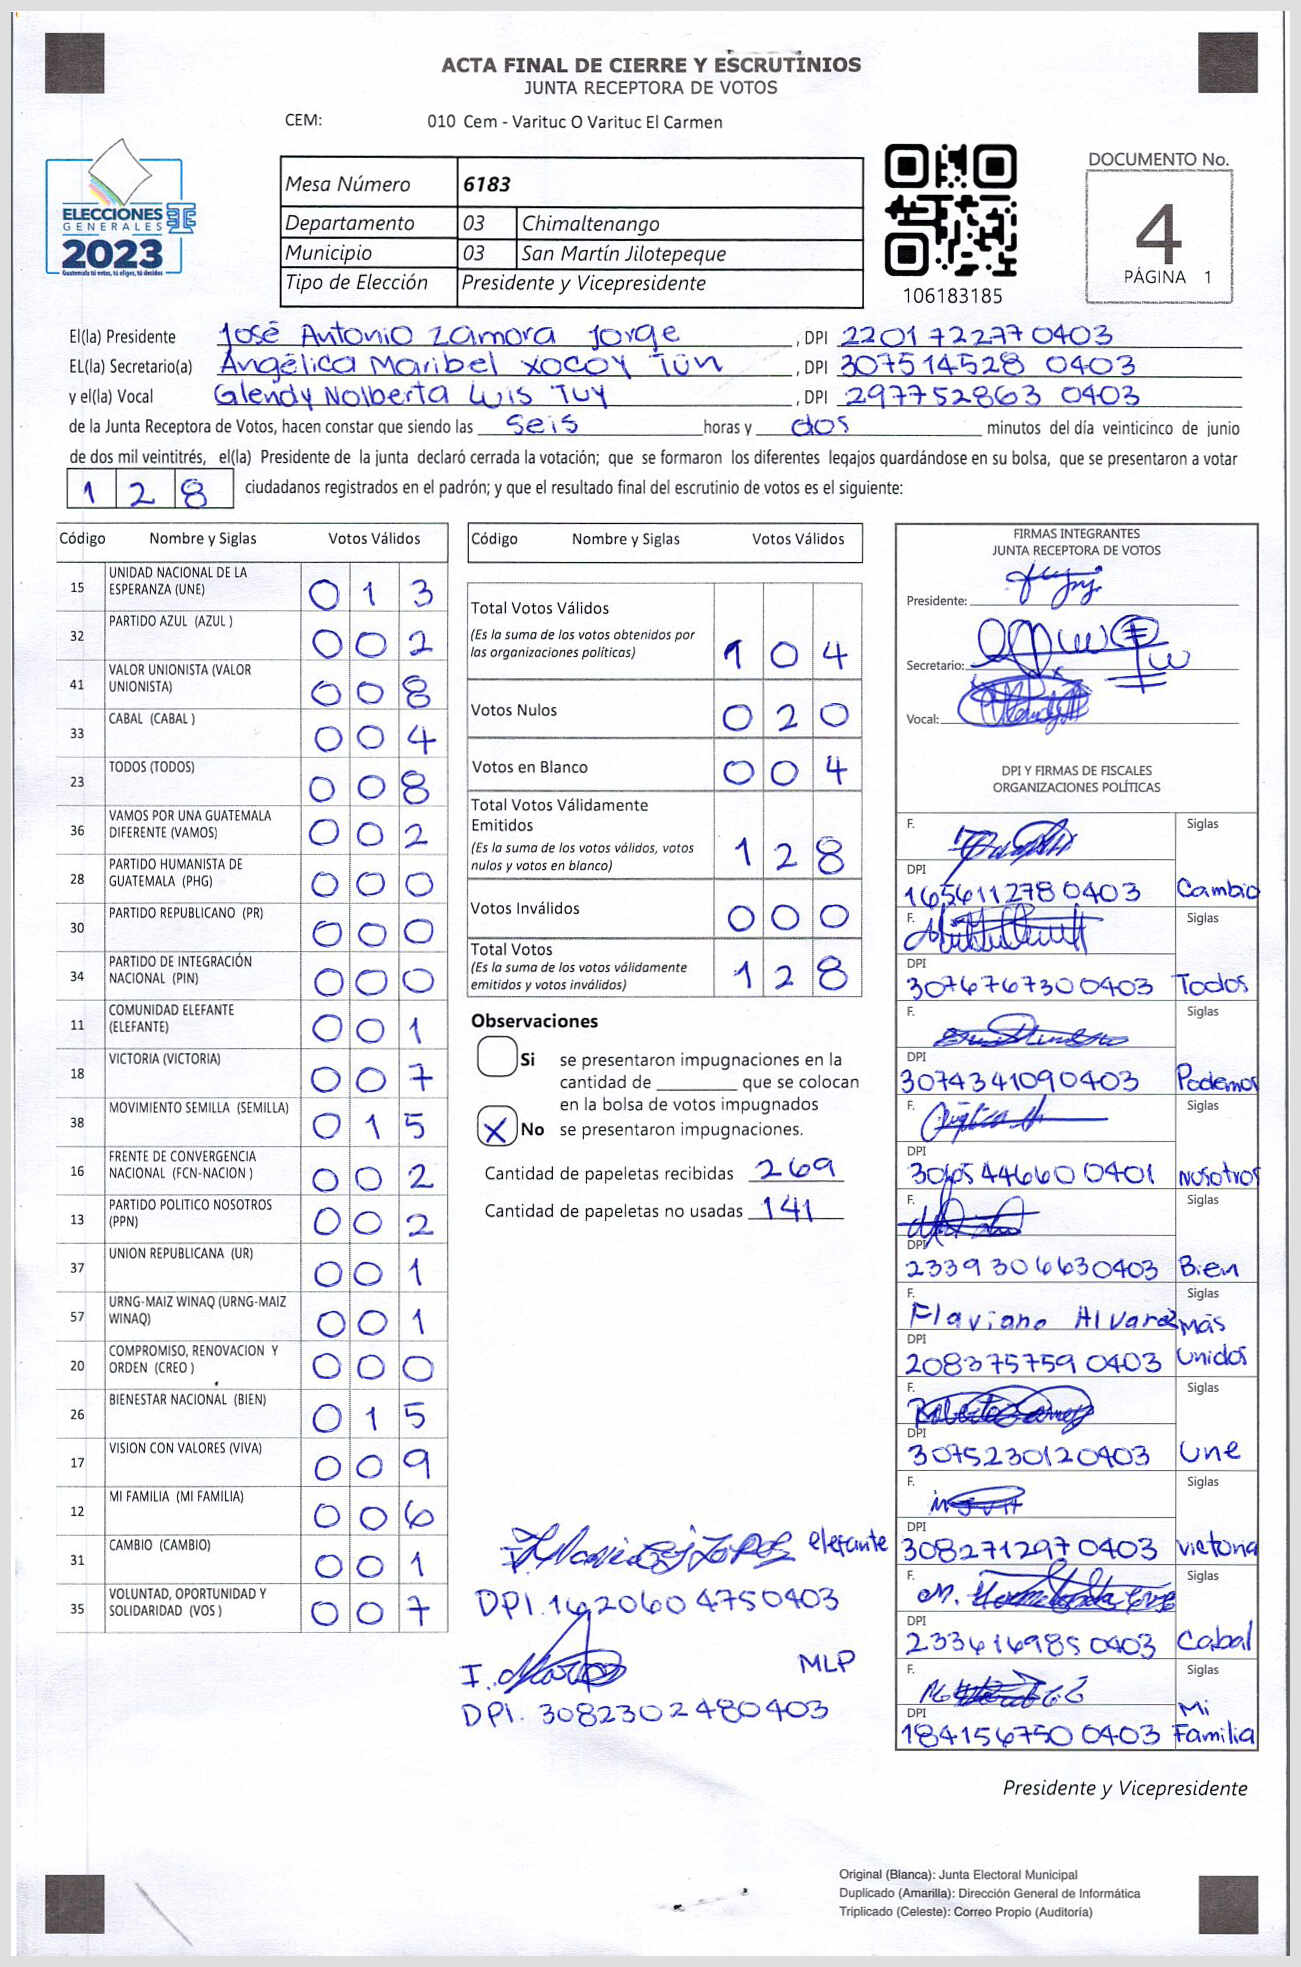 ACTA FINAL DE CIERRE Y ESCRUTINIOS
JUNTA RECEPTORA DE VOTOS
CEM: 010 Cem - Varituc O Varituc El Carmen
ELECCIONES
GENERALES
2023
Guatemala tú votas, tú eliges, tú decides
Mesa Número 6183
Departamento 03 Chimaltenango
Municipio 03 San Martín Jilotepeque
Tipo de Elección Presidente y Vicepresidente
106183185
DOCUMENTO No.
4
PÁGINA 1
El(la) Presidente José Antonio Zamora Jorge , DPI 2201 72277 0403
EL(la) Secretario(a) Angélica Maribel Xocoy Tun , DPI 307514528 0403
y el(la) Vocal Glendy Nolberta Luis Tuy , DPI 297752863 0403
de la Junta Receptora de Votos, hacen constar que siendo las seis horas y dos minutos del día veinticinco de junio
de dos mil veintitrés, el(la) Presidente de la junta declaró cerrada la votación; que se formaron los diferentes legajos guardándose en su bolsa, que se presentaron a votar
1 2 8 ciudadanos registrados en el padrón; y que el resultado final del escrutinio de votos es el siguiente:
Código Nombre y Siglas Votos Válidos
15 UNIDAD NACIONAL DE LA ESPERANZA (UNE) 0 1 3
32 PARTIDO AZUL (AZUL ) 0 0 2
41 VALOR UNIONISTA (VALOR UNIONISTA) 0 0 8
33 CABAL (CABAL ) 0 0 4
23 TODOS (TODOS) 0 0 8
36 VAMOS POR UNA GUATEMALA DIFERENTE (VAMOS) 0 0 2
28 PARTIDO HUMANISTA DE GUATEMALA (PHG) 0 0 0
30 PARTIDO REPUBLICANO (PR) 0 0 0
34 PARTIDO DE INTEGRACIÓN NACIONAL (PIN) 0 0 0
11 COMUNIDAD ELEFANTE (ELEFANTE) 0 0 1
18 VICTORIA (VICTORIA) 0 0 7
38 MOVIMIENTO SEMILLA (SEMILLA) 0 1 5
16 FRENTE DE CONVERGENCIA NACIONAL (FCN-NACION ) 0 0 2
13 PARTIDO POLITICO NOSOTROS (PPN) 0 0 2
37 UNION REPUBLICANA (UR) 0 0 1
57 URNG-MAIZ WINAQ (URNG-MAIZ WINAQ) 0 0 1
20 COMPROMISO, RENOVACION Y ORDEN (CREO ) 0 0 0
26 BIENESTAR NACIONAL (BIEN) 0 1 5
17 VISION CON VALORES (VIVA) 0 0 9
12 MI FAMILIA (MI FAMILIA) 0 0 6
31 CAMBIO (CAMBIO) 0 0 1
35 VOLUNTAD, OPORTUNIDAD Y SOLIDARIDAD (VOS ) 0 0 7
Código Nombre y Siglas Votos Válidos
Total Votos Válidos
(Es la suma de los votos obtenidos por
las organizaciones políticas) 1 0 4
Votos Nulos 0 2 0
Votos en Blanco 0 0 4
Total Votos Válidamente
Emitidos
(Es la suma de los votos válidos, votos
nulos y votos en blanco) 1 2 8
Votos Inválidos 0 0 0
Total Votos
(Es la suma de los votos válidamente
emitidos y votos inválidos) 1 2 8
Observaciones
Si se presentaron impugnaciones en la
cantidad de ________ que se colocan
en la bolsa de votos impugnados
X No se presentaron impugnaciones.
Cantidad de papeletas recibidas 269
Cantidad de papeletas no usadas 141
elefante
DPI. 162060 4750403
MLP
DPI. 308230 2480403
FIRMAS INTEGRANTES
JUNTA RECEPTORA DE VOTOS
Presidente:
Secretario:
Vocal:
DPI Y FIRMAS DE FISCALES
ORGANIZACIONES POLÍTICAS
F. Siglas
DPI
165611278 0403 Cambio
F. Siglas
DPI
307676730 0403 Todos
F. Siglas
DPI
3074341090403 Podemos
F. Siglas
DPI
306544660 0401 Nosotros
F. Siglas
DPI
2339306630403 Bien
F. Siglas
Flaviano Alvarez Más
DPI
208375759 0403 Unidos
F. Siglas
DPI
3075230120403 Une
F. Siglas
DPI
308271297 0403 Victoria
F. Siglas
DPI
233616985 0403 Cabal
F. Siglas
DPI Mi
184156750 0403 Familia
Presidente y Vicepresidente
Original (Blanca): Junta Electoral Municipal
Duplicado (Amarilla): Dirección General de Informática
Triplicado (Celeste): Correo Propio (Auditoría)